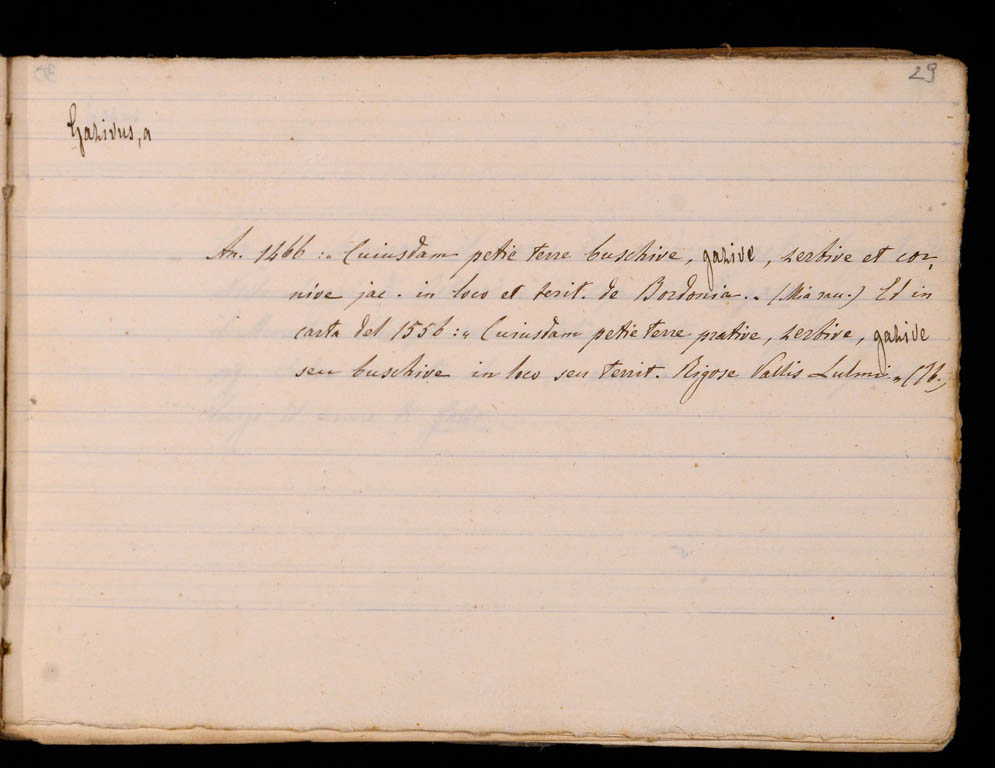 29
Gazivus, a
An. 1466 : „ Cuiusdam petie terre buschive, gazive, zerbive et cor-
nive jac. in loco et terit. de Bordonia „ (Mia rac.) Ed in
carta del 1556 : „ Cuiusdam petie terre prative, zerbive, gazive
seu buschive in loco seu territ. Rigose Vallis Lulmi „ (Ib.)